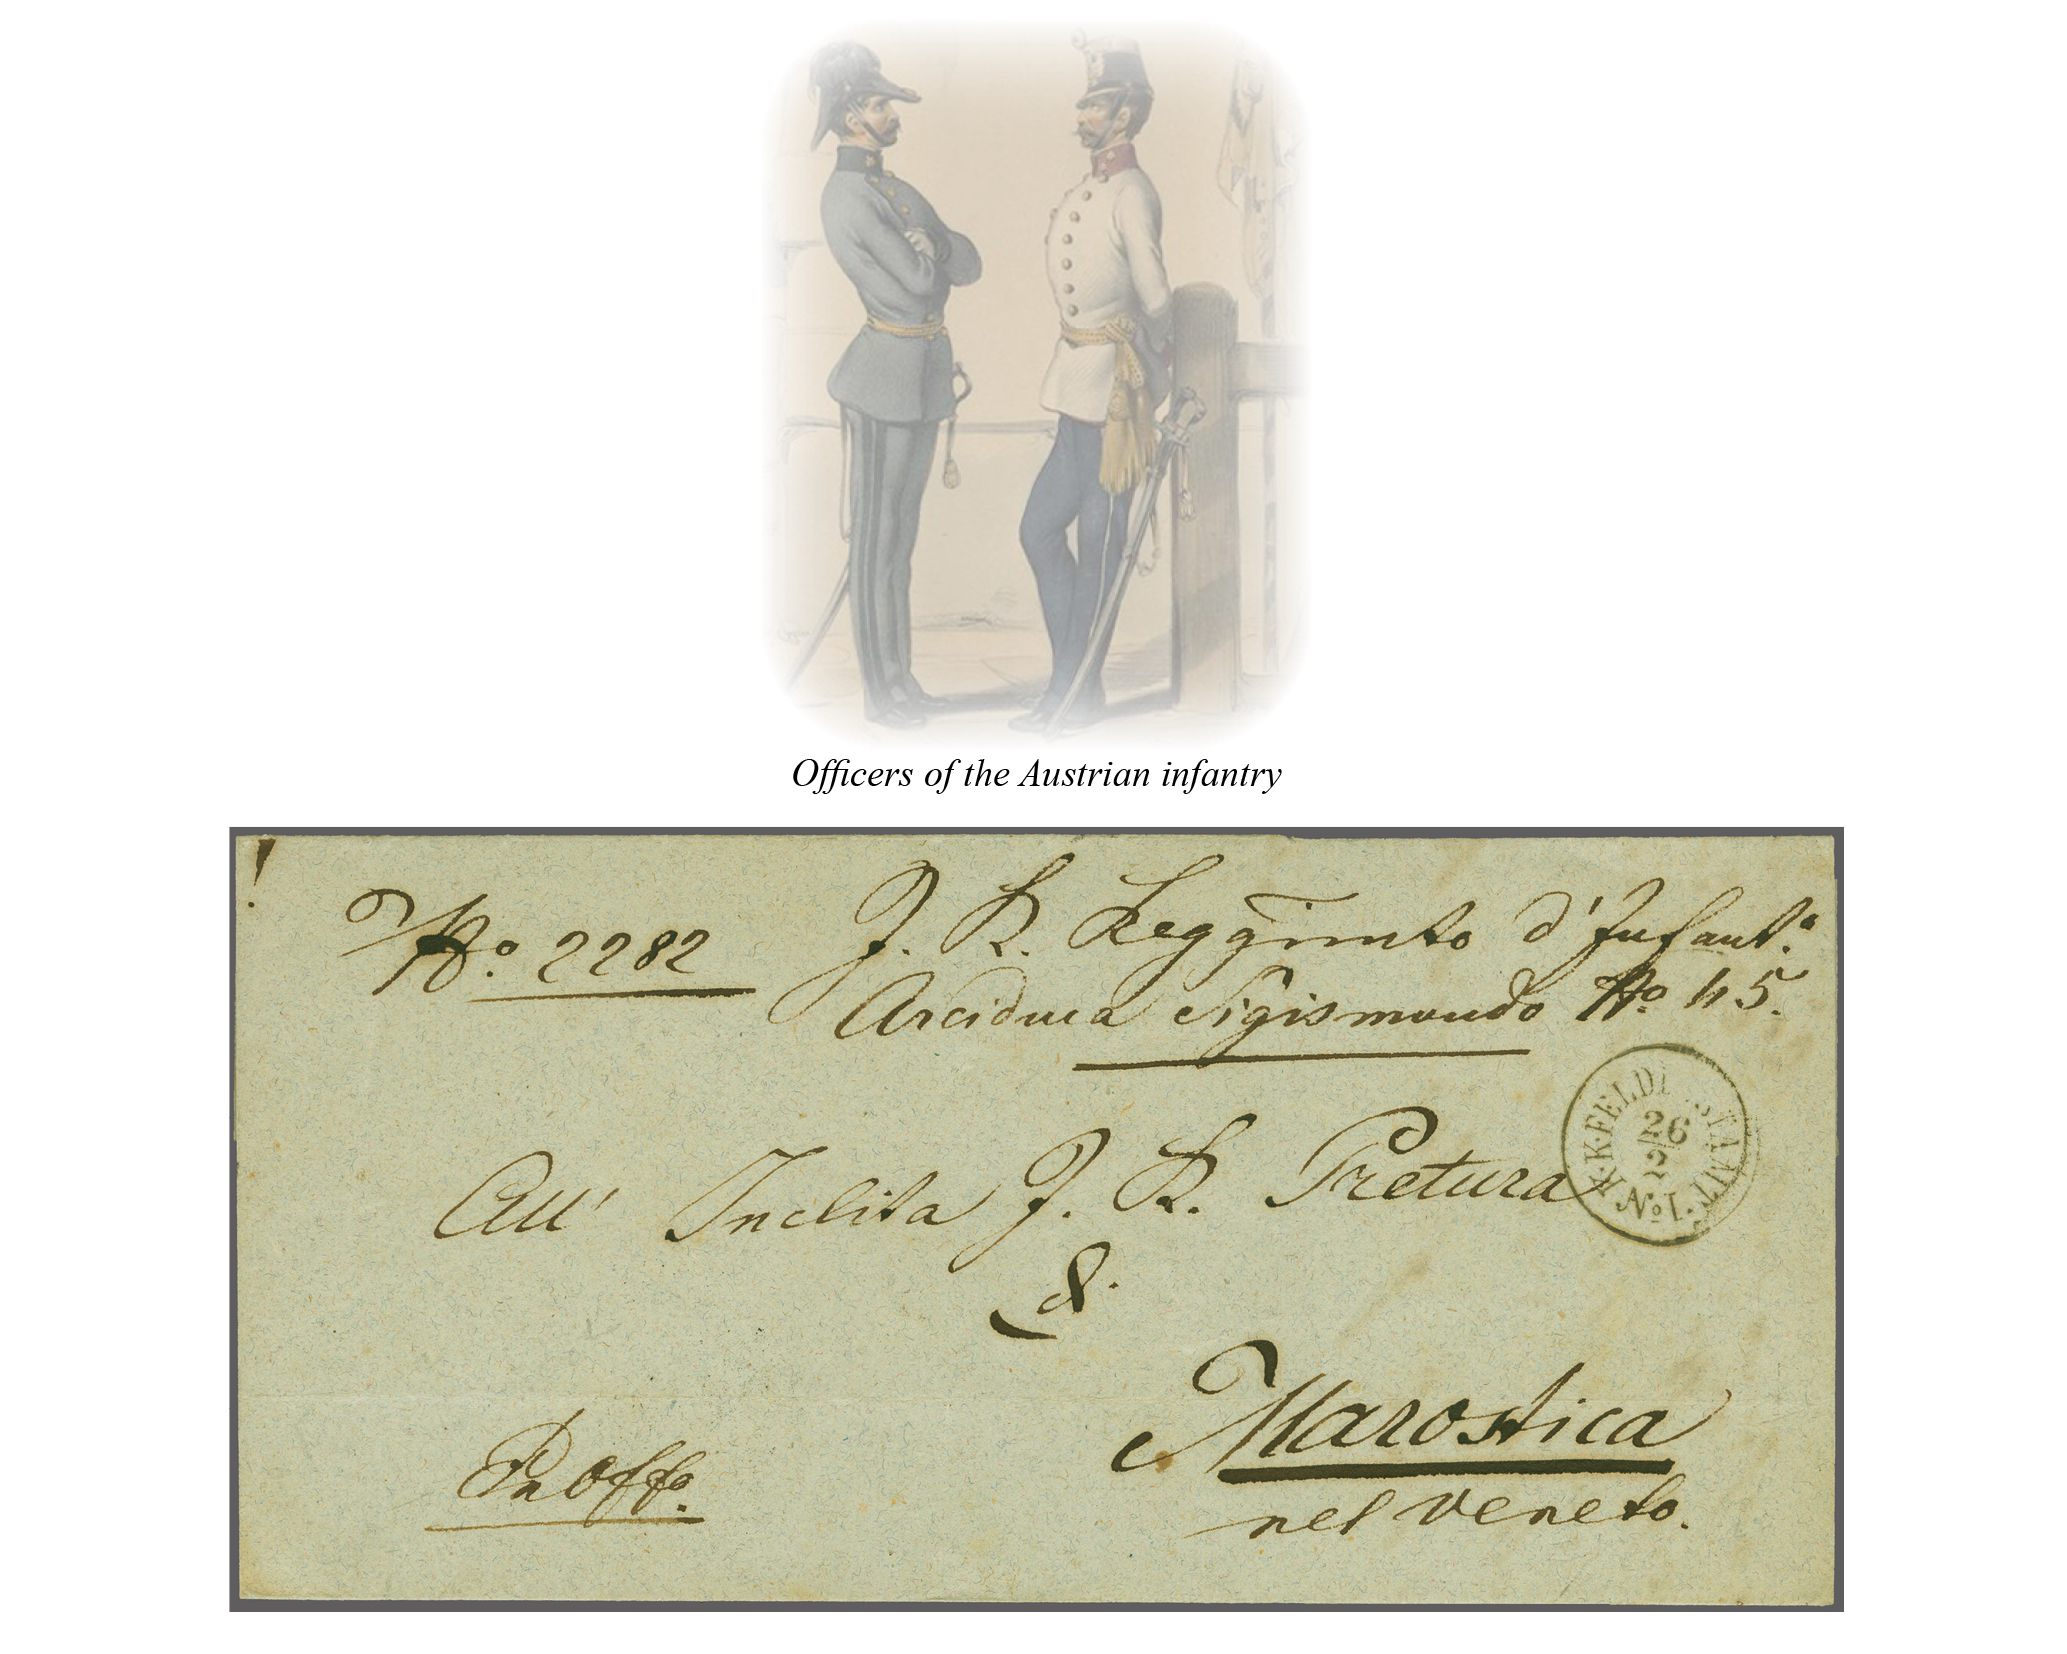 Officers of the Austrian infantry
No. 2282
J. R. Reggimto d'Infant.a
Arciduca Sigismondo No 45.
K.K.FELDPOSTAMT No I.
26
2
All' Inclita J. R. Pretura
Marostica
nel Veneto.